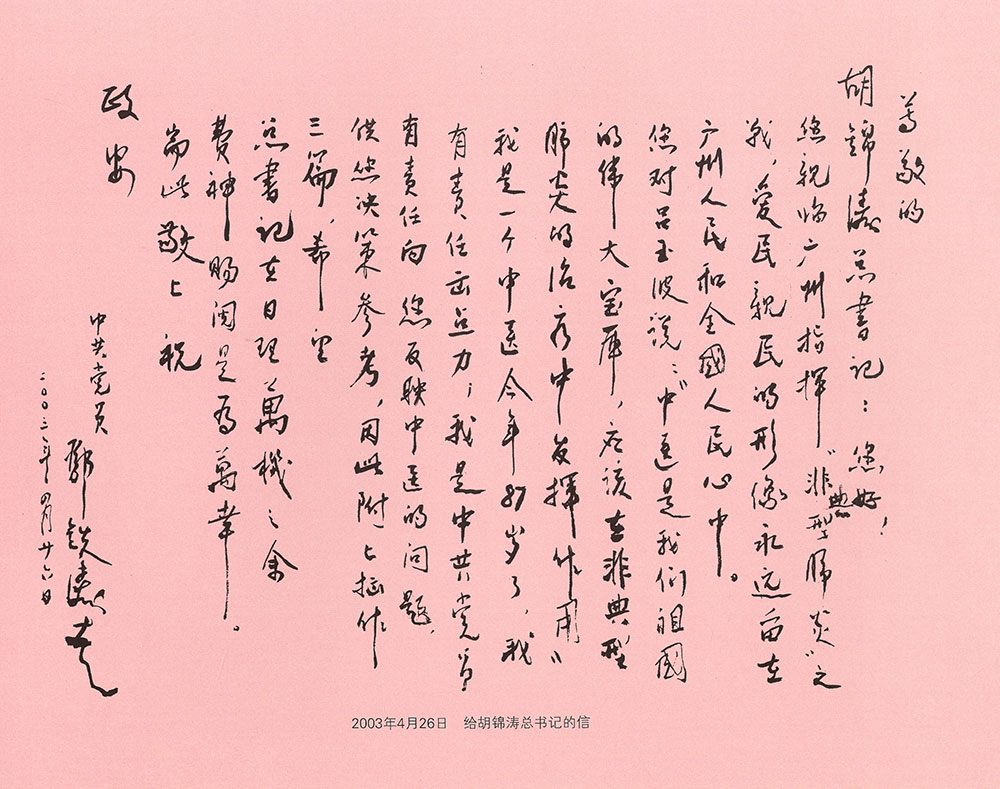 尊敬的
胡錦濤总書记：您好！
您親临广州指挥“非典型肺炎”之
战，爱民親民的形像永远留在
广州人民和全國人民心中。
您对吕玉波説：“中医是我们祖國
的伟大宝库，应该在非典型
肺炎的治疗中发揮作用”
我是一个中医今年87岁了，我
有責任出点力；我是中共党員
有责任向 您反映中医的问题，
供您决策参考，因此附上拙作
三篇，希望
总書记在日理萬機之余
費神賜阅是为萬幸。
耑此敬上祝
政安
中共党员 鄧铁濤
二00三年四月廿六日
2003年4月26日 给胡锦涛总书记的信